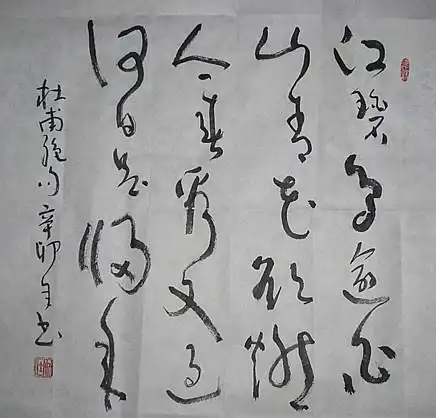 江碧鳥逾白
山青花欲燃
今春看又過
何日是歸年
杜甫絶句辛卯年书